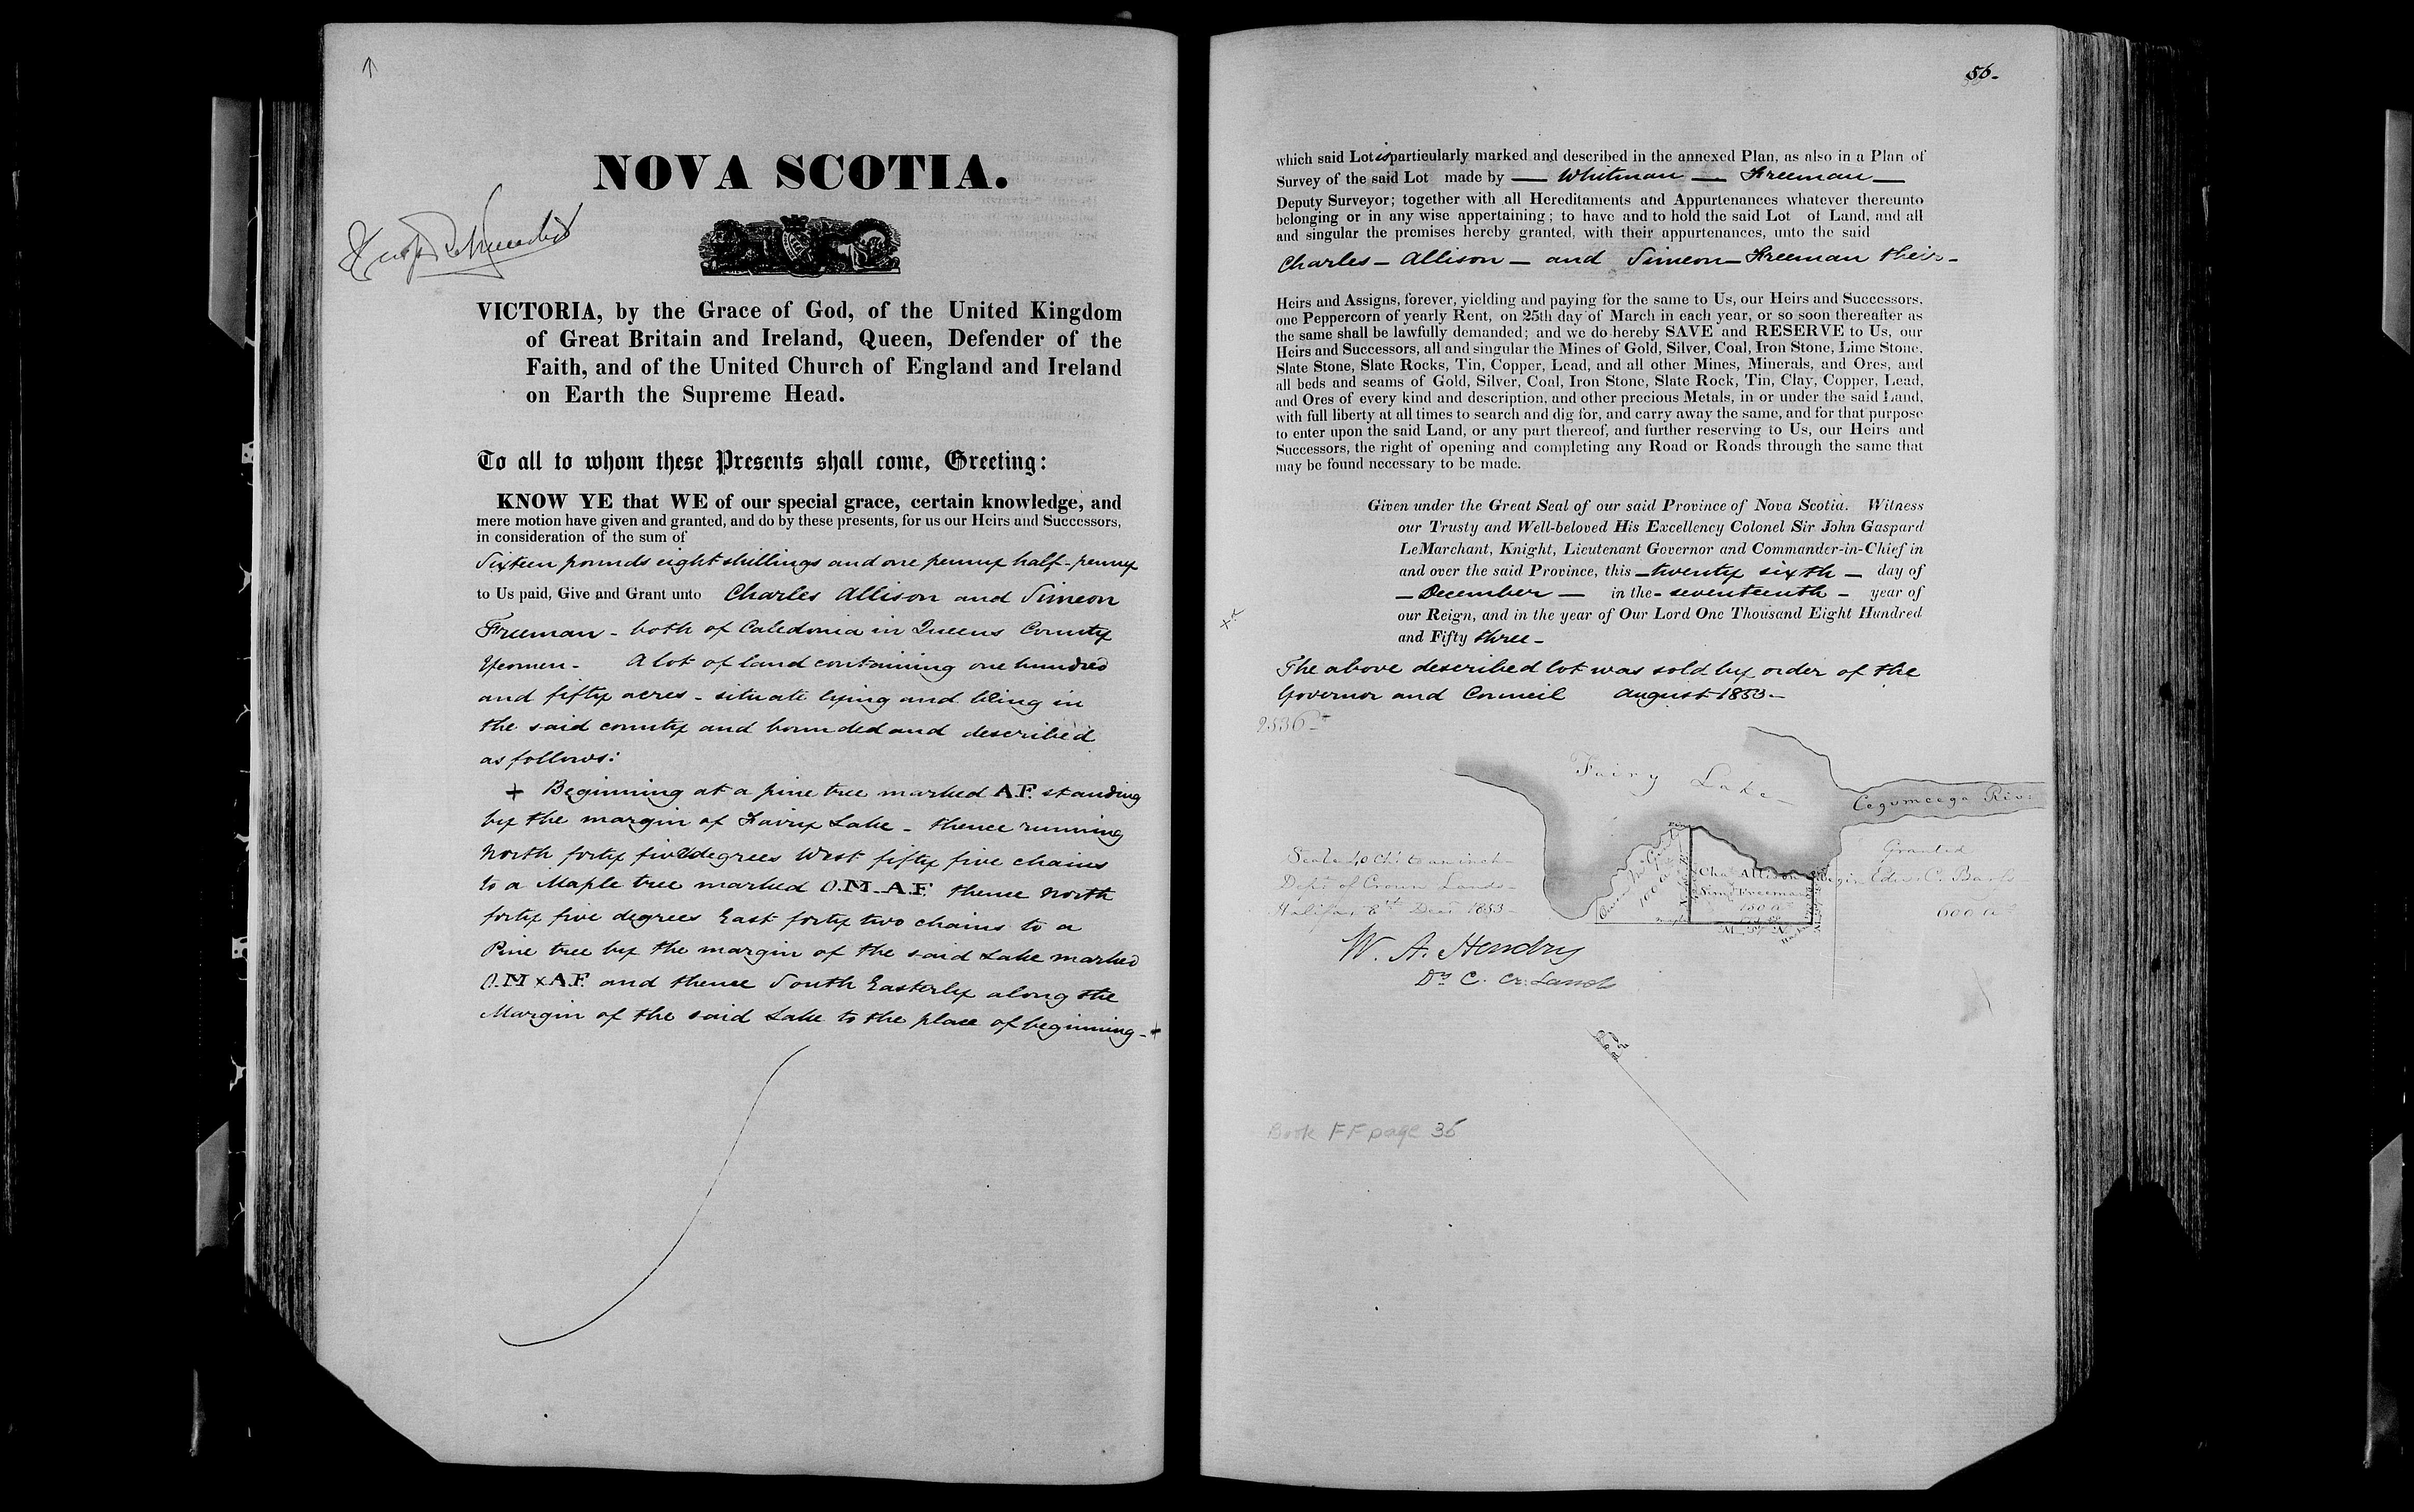 NOVA SCOTIA.
VICTORIA, by the Grace of God, of the United Kingdom
of Great Britain and Ireland, Queen, Defender of the
Faith, and of the United Church of England and Ireland
on Earth the Supreme Head.
To all to whom these Presents shall come, Greeting:
KNOW YE that WE of our special grace, certain knowledge, and
mere motion have given and granted, and do by these presents, for us our Heirs and Successors,
in consideration of the sum of
Sixteen pounds eight shillings and one penny half-penny
to Us paid, Give and Grant unto Charles Allison and Simeon
Freeman - both of Caledonia in Queens County
Yeomen - A lot of land containing one hundred
and fifty acres - situate lying and being in
the said county and bounded and described
as follows:
+ Beginning at a pine tree marked A.F. standing
by the margin of Fairy Lake - thence running
North forty five degrees West fifty five chains
to a Maple tree marked O.M-A.F thence North
forty five degrees East forty two chains to a
Pine tree by the margin of the said Lake marked
O.M x A.F. and thence South Easterly along the
Margin of the said Lake to the place of beginning - +
56-
which said Lot is particularly marked and described in the annexed Plan, as also in a Plan of
Survey of the said Lot made by — Whitman — Freeman —
Deputy Surveyor; together with all Hereditaments and Appurtenances whatever thereunto
belonging or in any wise appertaining; to have and to hold the said Lot of Land, and all
and singular the premises hereby granted, with their appurtenances, unto the said
Charles - Allison - and Simeon - Freeman their -
Heirs and Assigns, forever, yielding and paying for the same to Us, our Heirs and Successors,
one Peppercorn of yearly Rent, on 25th day of March in each year, or so soon thereafter as
the same shall be lawfully demanded; and we do hereby SAVE and RESERVE to Us, our
Heirs and Successors, all and singular the Mines of Gold, Silver, Coal, Iron Stone, Lime Stone,
Slate Stone, Slate Rocks, Tin, Copper, Lead, and all other Mines, Minerals, and Ores, and
all beds and seams of Gold, Silver, Coal, Iron Stone, Slate Rock, Tin, Clay, Copper, Lead,
and Ores of every kind and description, and other precious Metals, in or under the said Land,
with full liberty at all times to search and dig for, and carry away the same, and for that purpose
to enter upon the said Land, or any part thereof, and further reserving to Us, our Heirs and
Successors, the right of opening and completing any Road or Roads through the same that
may be found necessary to be made.
Given under the Great Seal of our said Province of Nova Scotia. Witness
our Trusty and Well-beloved His Excellency Colonel Sir John Gaspard
LeMarchant, Knight, Lieutenant Governor and Commander-in-Chief in
and over the said Province, this - twenty sixth - day of
- December - in the - seventeenth - year of
our Reign, and in the year of Our Lord One Thousand Eight Hundred
and Fifty three -
The above described lot was sold by order of the
Governor and Council August 1853 -
Fairy Lake -
Cegumcega Riv
Scale 40 Chs to an inch -
Dept of Crown Lands -
Halifax 8th Decr 1853 -
Granted
Edwd C.
600 as
100
Chas Allison &
Simn Freeman
150 as
W. A. Hendry
Dy C. Cr. Lands
Book FF page 35